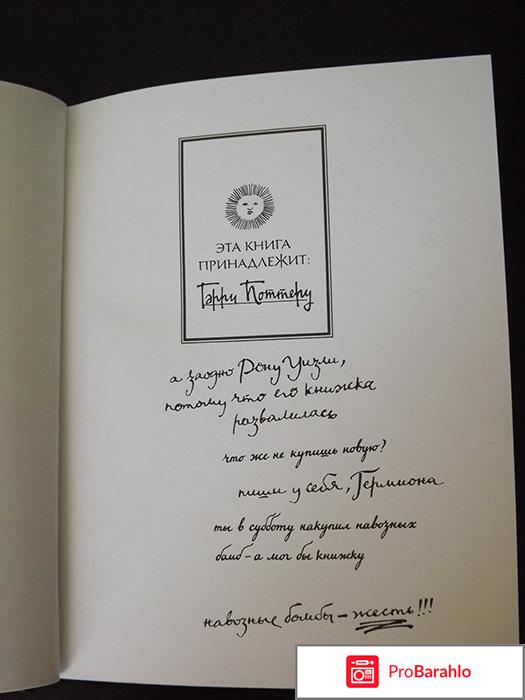 ЭТА КНИГА
ПРИНАДЛЕЖИТ:
Гарри Поттеру
а заодно Рону Уизли,
потому что его книжка
развалилась
что же не купишь новую?
пиши у себя, Гермиона
ты в субботу накупил навозных
бомб – а мог бы книжку
навозные бомбы – жесть!!!
ProBarahlo